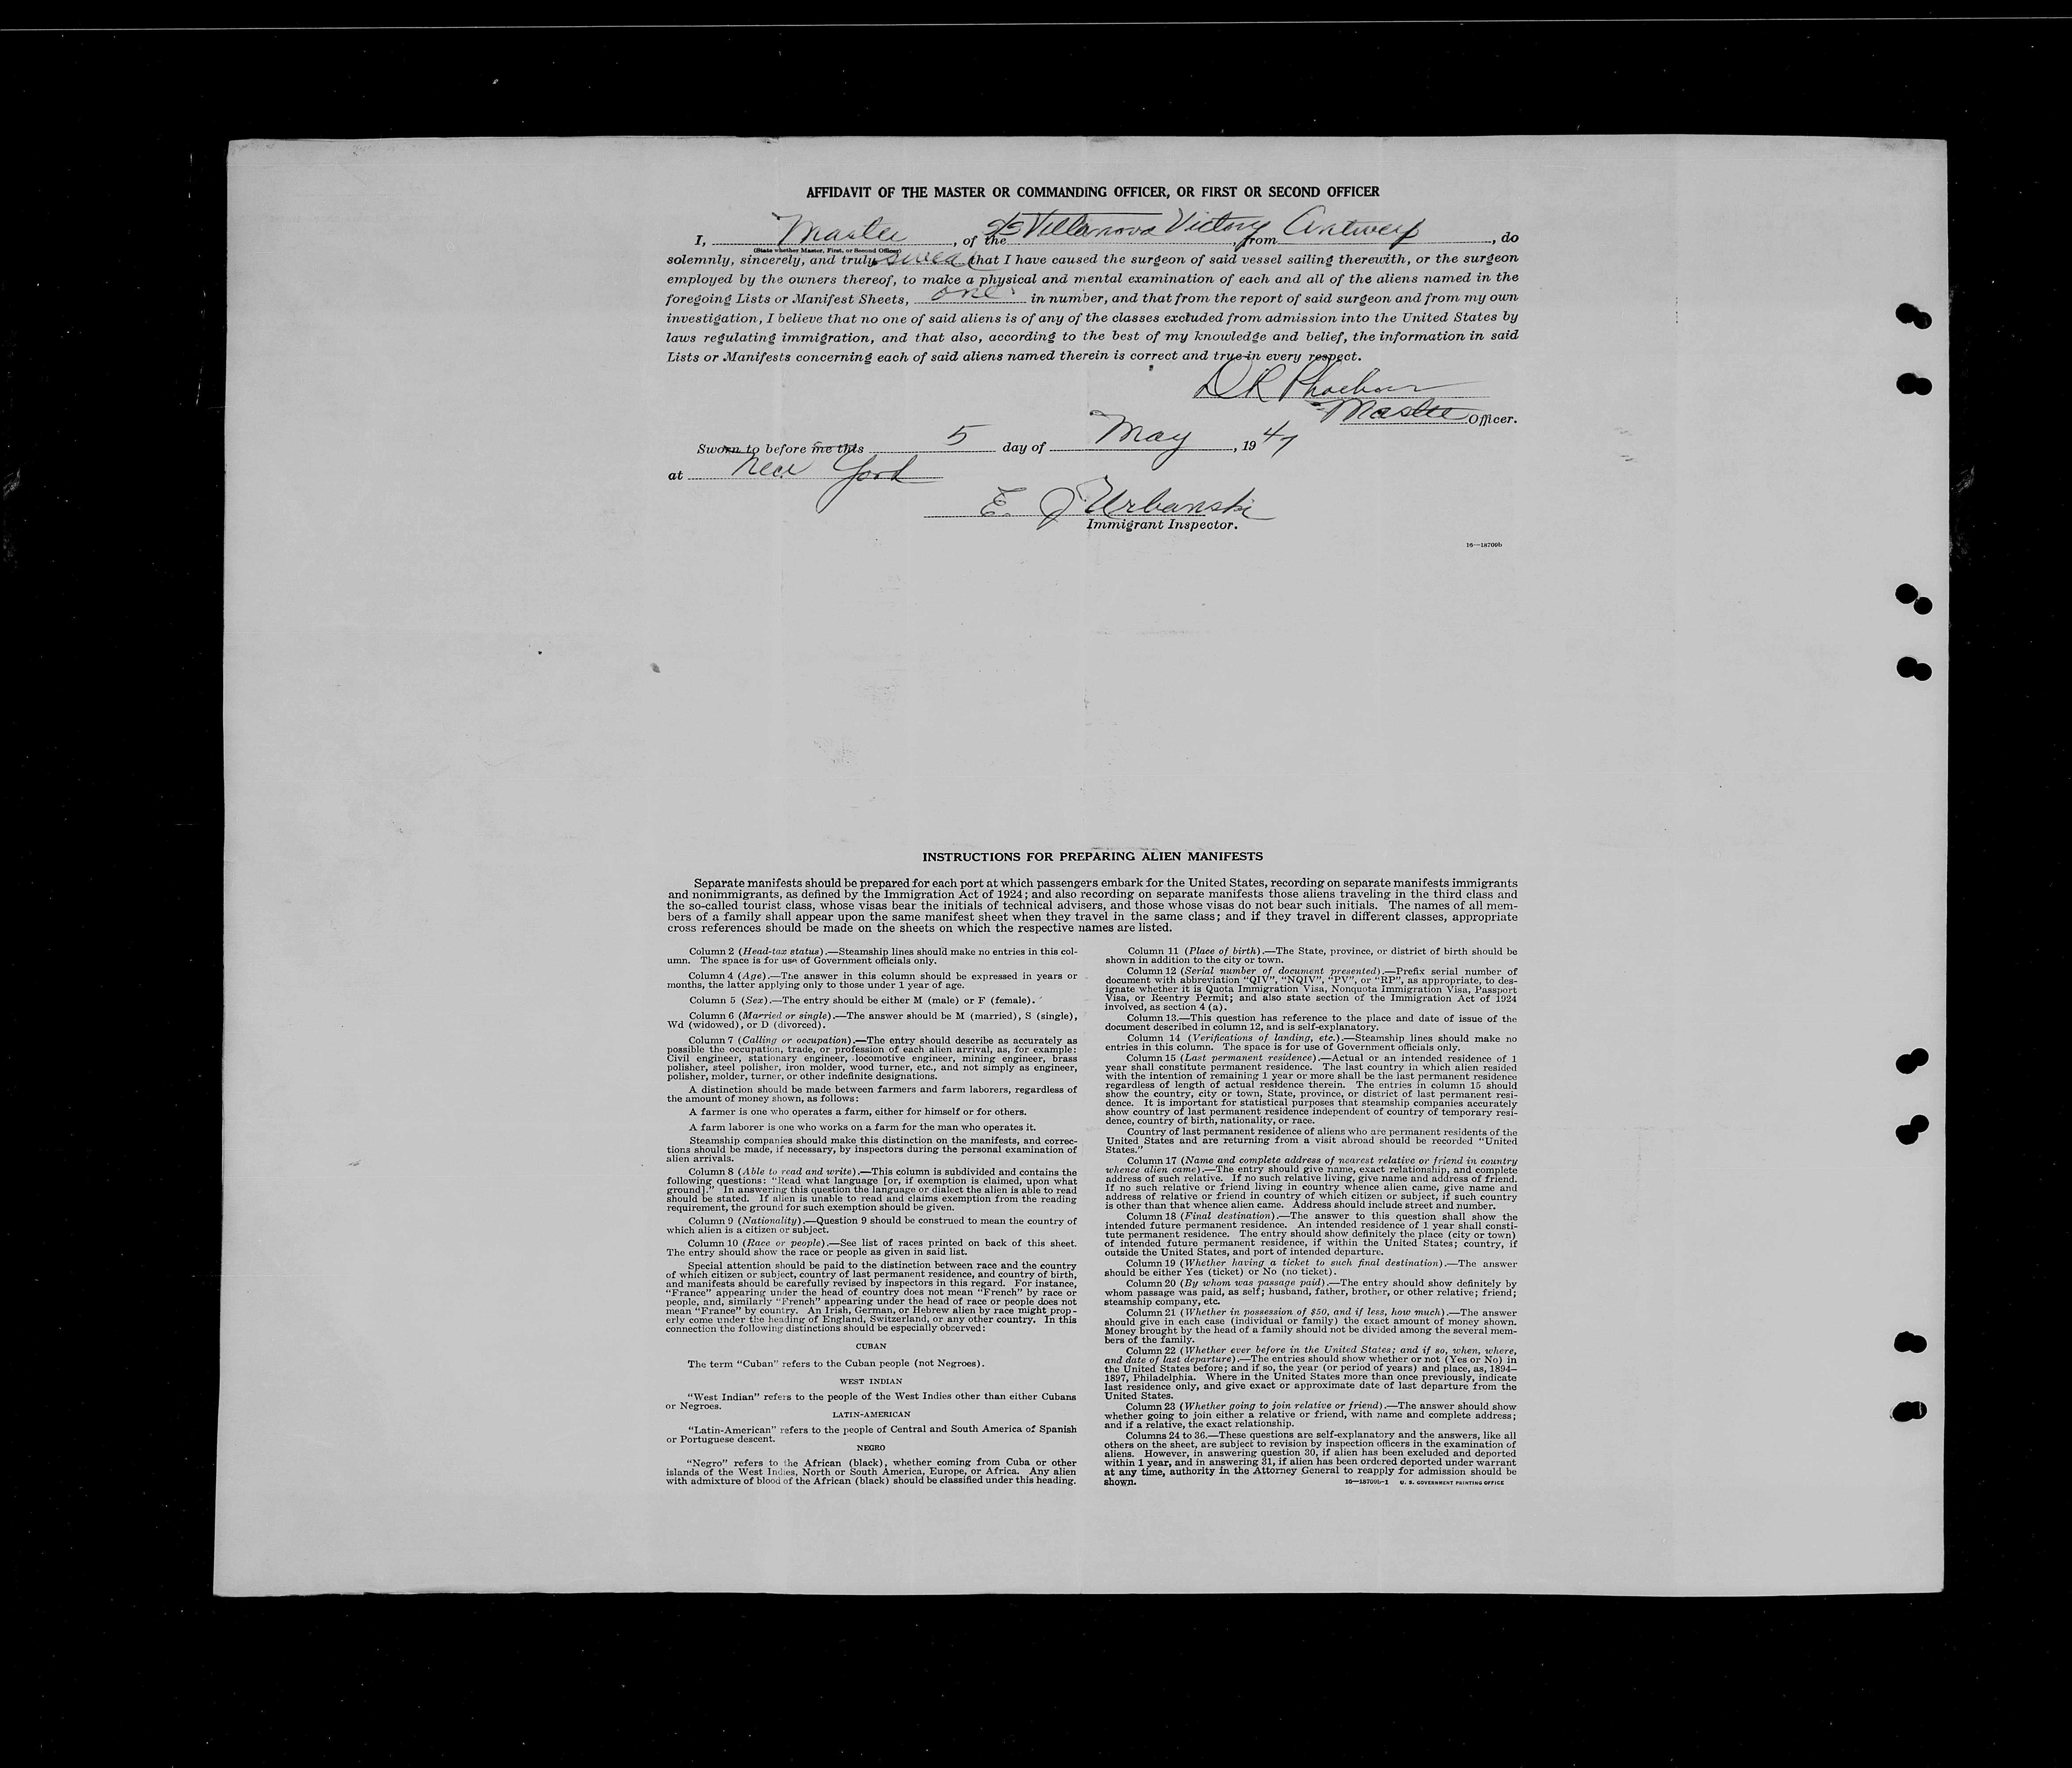 AFFIDAVIT OF THE MASTER OR COMMANDING OFFICER, OR FIRST OR SECOND OFFICER
I, Master, of the SS Villanova Victory, from Antwerp, do
(State whether Master, First, or Second Officer)
solemnly, sincerely, and truly swear that I have caused the surgeon of said vessel sailing therewith, or the surgeon
employed by the owners thereof, to make a physical and mental examination of each and all of the aliens named in the
foregoing Lists or Manifest Sheets, one in number, and that from the report of said surgeon and from my own
investigation, I believe that no one of said aliens is of any of the classes excluded from admission into the United States by
laws regulating immigration, and that also, according to the best of my knowledge and belief, the information in said
Lists or Manifests concerning each of said aliens named therein is correct and true in every respect.
D R
Master Officer.
Sworn to before me this 5 day of May, 1947
at New York
E. J Urbanski
Immigrant Inspector.
16—18709b
INSTRUCTIONS FOR PREPARING ALIEN MANIFESTS
Separate manifests should be prepared for each port at which passengers embark for the United States, recording on separate manifests immigrants
and nonimmigrants, as defined by the Immigration Act of 1924; and also recording on separate manifests those aliens traveling in the third class and
the so-called tourist class, whose visas bear the initials of technical advisers, and those whose visas do not bear such initials. The names of all mem-
bers of a family shall appear upon the same manifest sheet when they travel in the same class; and if they travel in different classes, appropriate
cross references should be made on the sheets on which the respective names are listed.
Column 2 (Head-tax status).—Steamship lines should make no entries in this col-
umn. The space is for use of Government officials only.
Column 4 (Age).—The answer in this column should be expressed in years or
months, the latter applying only to those under 1 year of age.
Column 5 (Sex).—The entry should be either M (male) or F (female).
Column 6 (Married or single).—The answer should be M (married), S (single),
Wd (widowed), or D (divorced).
Column 7 (Calling or occupation).—The entry should describe as accurately as
possible the occupation, trade, or profession of each alien arrival, as, for example:
Civil engineer, stationary engineer, locomotive engineer, mining engineer, brass
polisher, steel polisher, iron molder, wood turner, etc., and not simply as engineer,
polisher, molder, turner, or other indefinite designations.
A distinction should be made between farmers and farm laborers, regardless of
the amount of money shown, as follows:
A farmer is one who operates a farm, either for himself or for others.
A farm laborer is one who works on a farm for the man who operates it.
Steamship companies should make this distinction on the manifests, and correc-
tions should be made, if necessary, by inspectors during the personal examination of
alien arrivals.
Column 8 (Able to read and write).—This column is subdivided and contains the
following questions: "Read what language [or, if exemption is claimed, upon what
ground]." In answering this question the language or dialect the alien is able to read
should be stated. If alien is unable to read and claims exemption from the reading
requirement, the ground for such exemption should be given.
Column 9 (Nationality).—Question 9 should be construed to mean the country of
which alien is a citizen or subject.
Column 10 (Race or people).—See list of races printed on back of this sheet.
The entry should show the race or people as given in said list.
Special attention should be paid to the distinction between race and the country
of which citizen or subject, country of last permanent residence, and country of birth,
and manifests should be carefully revised by inspectors in this regard. For instance,
"France" appearing under the head of country does not mean "French" by race or
people, and, similarly "French" appearing under the head of race or people does not
mean "France" by country. An Irish, German, or Hebrew alien by race might prop-
erly come under the heading of England, Switzerland, or any other country. In this
connection the following distinctions should be especially observed:
CUBAN
The term "Cuban" refers to the Cuban people (not Negroes).
WEST INDIAN
"West Indian" refers to the people of the West Indies other than either Cubans
or Negroes.
LATIN-AMERICAN
"Latin-American" refers to the people of Central and South America of Spanish
or Portuguese descent.
NEGRO
"Negro" refers to the African (black), whether coming from Cuba or other
islands of the West Indies, North or South America, Europe, or Africa. Any alien
with admixture of blood of the African (black) should be classified under this heading.
Column 11 (Place of birth).—The State, province, or district of birth should be
shown in addition to the city or town.
Column 12 (Serial number of document presented).—Prefix serial number of
document with abbreviation "QIV", "NQIV", "PV", or "RP", as appropriate, to des-
ignate whether it is Quota Immigration Visa, Nonquota Immigration Visa, Passport
Visa, or Reentry Permit; and also state section of the Immigration Act of 1924
involved, as section 4 (a).
Column 13.—This question has reference to the place and date of issue of the
document described in column 12, and is self-explanatory.
Column 14 (Verifications of landing, etc.).—Steamship lines should make no
entries in this column. The space is for use of Government officials only.
Column 15 (Last permanent residence).—Actual or an intended residence of 1
year shall constitute permanent residence. The last country in which alien resided
with the intention of remaining 1 year or more shall be the last permanent residence
regardless of length of actual residence therein. The entries in column 15 should
show the country, city or town, State, province, or district of last permanent resi-
dence. It is important for statistical purposes that steamship companies accurately
show country of last permanent residence independent of country of temporary resi-
dence, country of birth, nationality, or race.
Country of last permanent residence of aliens who are permanent residents of the
United States and are returning from a visit abroad should be recorded "United
States."
Column 17 (Name and complete address of nearest relative or friend in country
whence alien came).—The entry should give name, exact relationship, and complete
address of such relative. If no such relative living, give name and address of friend.
If no such relative or friend living in country whence alien came, give name and
address of relative or friend in country of which citizen or subject, if such country
is other than that whence alien came. Address should include street and number.
Column 18 (Final destination).—The answer to this question shall show the
intended future permanent residence. An intended residence of 1 year shall consti-
tute permanent residence. The entry should show definitely the place (city or town)
of intended future permanent residence, if within the United States; country, if
outside the United States, and port of intended departure.
Column 19 (Whether having a ticket to such final destination).—The answer
should be either Yes (ticket) or No (no ticket).
Column 20 (By whom was passage paid).—The entry should show definitely by
whom passage was paid, as self; husband, father, brother, or other relative; friend;
steamship company, etc.
Column 21 (Whether in possession of $50, and if less, how much).—The answer
should give in each case (individual or family) the exact amount of money shown.
Money brought by the head of a family should not be divided among the several mem-
bers of the family.
Column 22 (Whether ever before in the United States; and if so, when, where,
and date of last departure).—The entries should show whether or not (Yes or No) in
the United States before; and if so, the year (or period of years) and place, as, 1894–
1897, Philadelphia. Where in the United States more than once previously, indicate
last residence only, and give exact or approximate date of last departure from the
United States.
Column 23 (Whether going to join relative or friend).—The answer should show
whether going to join either a relative or friend, with name and complete address;
and if a relative, the exact relationship.
Columns 24 to 36.—These questions are self-explanatory and the answers, like all
others on the sheet, are subject to revision by inspection officers in the examination of
aliens. However, in answering question 30, if alien has been excluded and deported
within 1 year, and in answering 31, if alien has been ordered deported under warrant
at any time, authority in the Attorney General to reapply for admission should be
shown.
16—18709b-1 U. S. GOVERNMENT PRINTING OFFICE